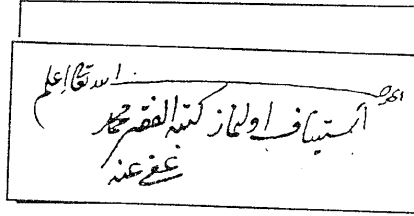 الجواب الله تعالى اعلم
استيناف اولنماز كتبه الفقير محمد
عفى عنه